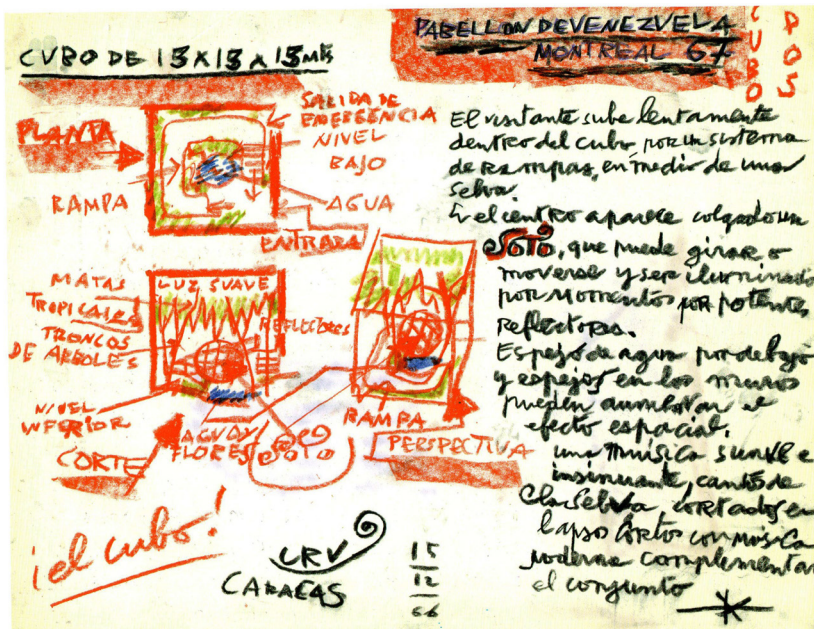 CUBO DE 13 X 13 X 13 MTS
PABELLON DE VENEZUELA
MONTREAL 67
CUBO
SALIDA DE
EMERGENCIA
PLANTA
NIVEL
BAJO
RAMPA
AGUA
ENTRADA
MATAS
TROPICALES
TRONCOS
DE ARBOLES
LUZ SUAVE
REFLECTORES
NIVEL
INFERIOR
CORTE
AGUA Y
FLORES
SOTO
RAMPA
PERSPECTIVA
¡el cubo!
CRV
CARACAS
15
12
66
El visitante sube lentamente
dentro del cubo, por un sistema
de Rampas, en medio de una
selva.
En el centro aparece colgado un
SOTO, que puede girar o
moverse y ser iluminado
por momentos por potentes
reflectores.
Espejo de agua por debajo
y espejos en los muros
pueden aumentar el
efecto espacial.
una música suave e
insinuante, cantos de
la selva cortados en
lapsos cortos con música
moderna complementan
el conjunto